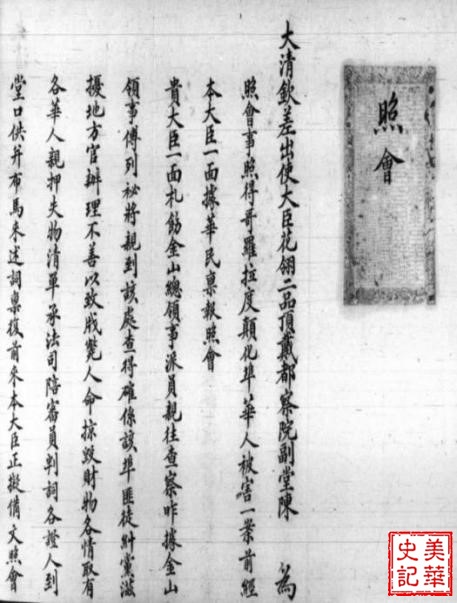 照會
大清欽差出使大臣花翎二品頂戴都察院副堂陳 為
照會事照得哥羅拉度顛化埠華人被害一案前經
本大臣一面據華民稟報照會
貴大臣一面札飭金山總領事派員親往查察昨據金山
領事傅列祕將親到該處查得確係該埠匪徒糾黨滋
擾地方官辦理不善以致戕斃人命掠毀財物各情取有
各華人親押失物清單承法司陪審員判詞各證人到
堂口供并布馬朱述詞稟復前來本大臣正擬備文照會
美華史記